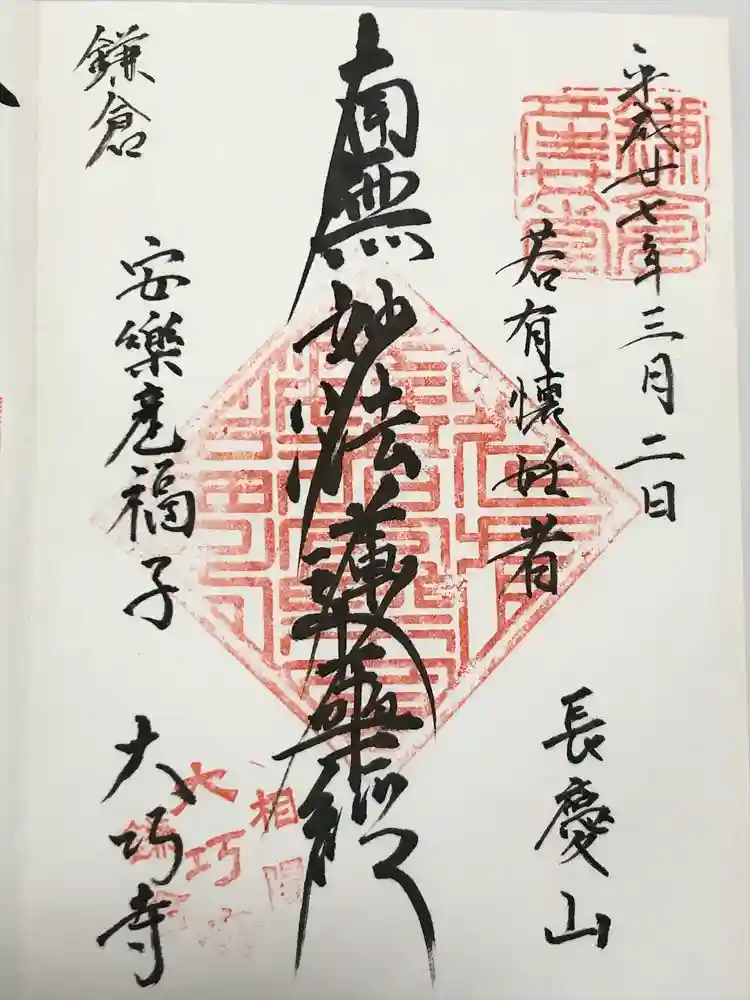 平成廿七年三月二日
若有懐妊者
長慶山
南無妙法蓮華経
鎌倉
安樂産福子
大巧寺
鎌倉
産女堂
相陽
鎌倉
大巧寺